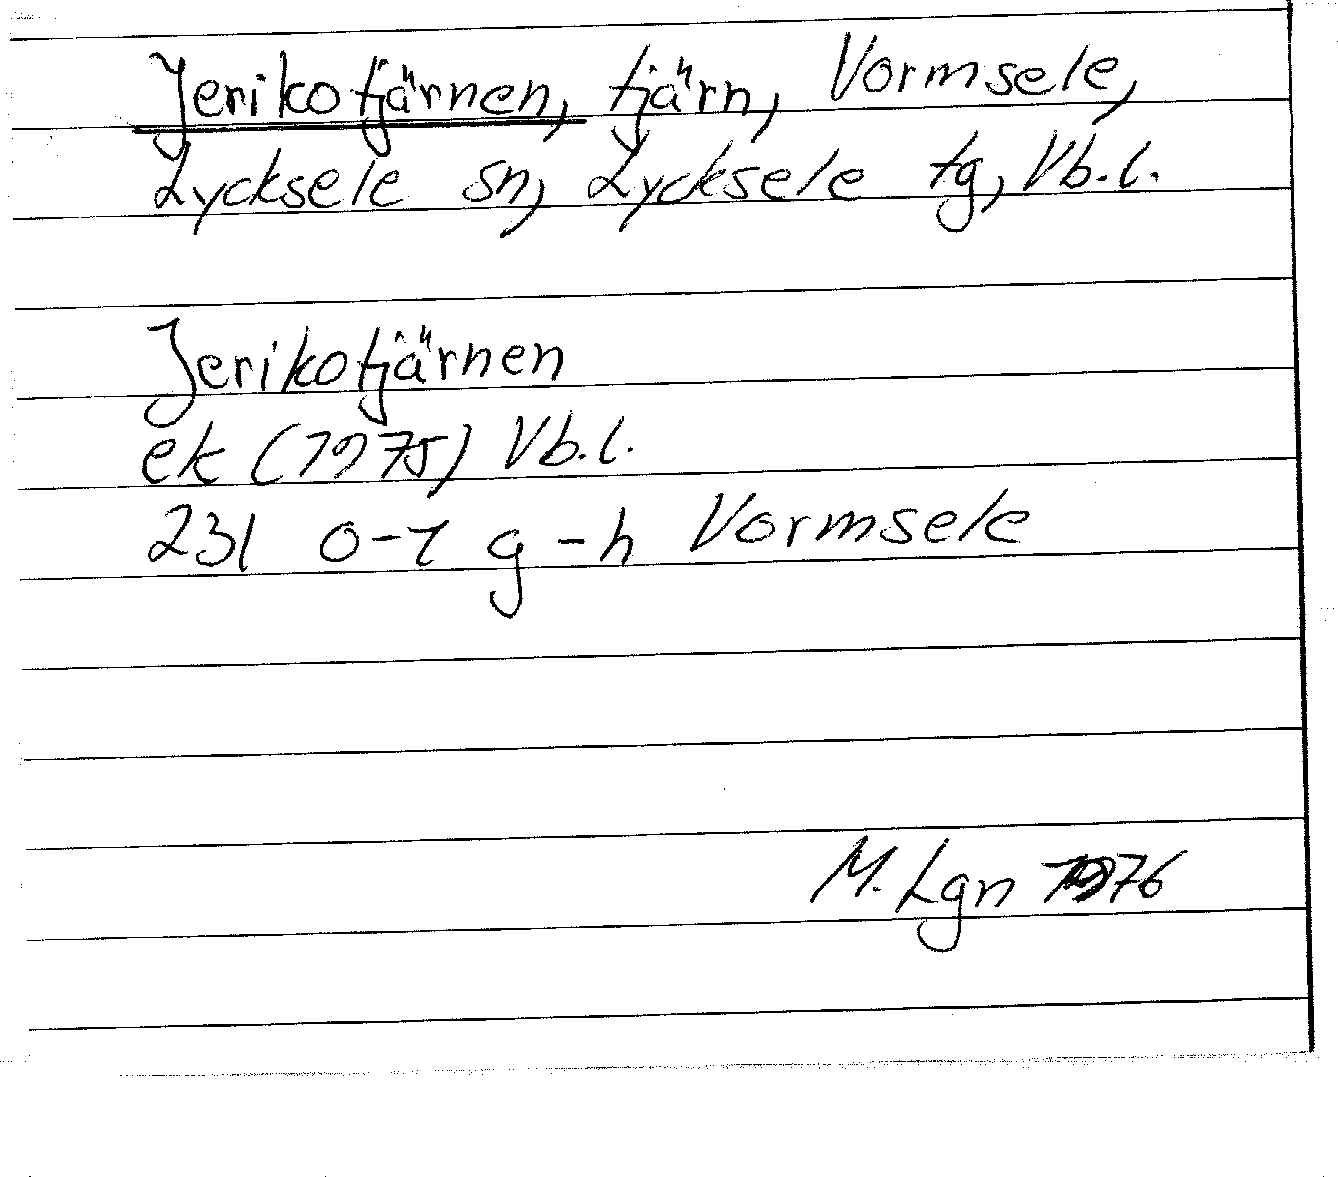 Jerikotjärnen, tjärn, Vormsele,
Lycksele sn, Lycksele tg, Vb.l.
Jerikotjärnen
ek (1975) Vb.l.
231 o-1 g-h Vormsele
M. Lgn 1976